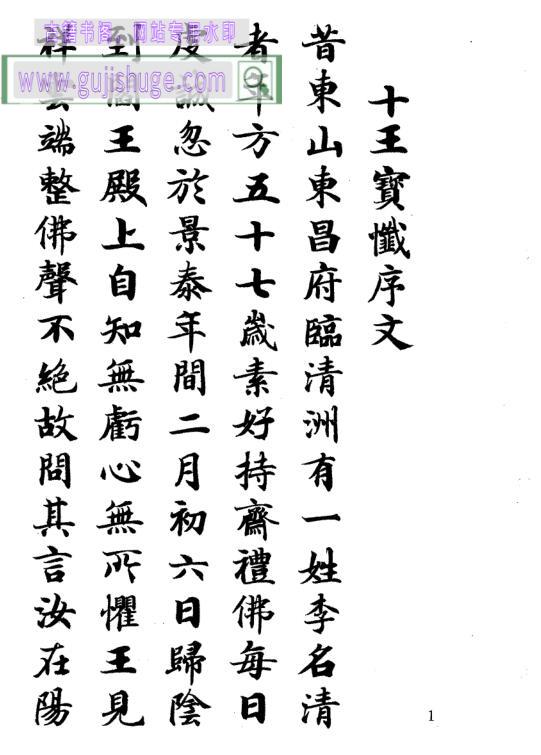 十王寶懺序文
昔東山東昌府臨清洲有一姓李名清
者年方五十七歲素好持齋禮佛每日
虔誠忽於景泰年間二月初六日歸陰
到閻王殿上自知無虧心無所懼王見
祥雲端整佛聲不絕故問其言汝在陽
古籍书阁 网站专用水印
www.gujishuge.com
1